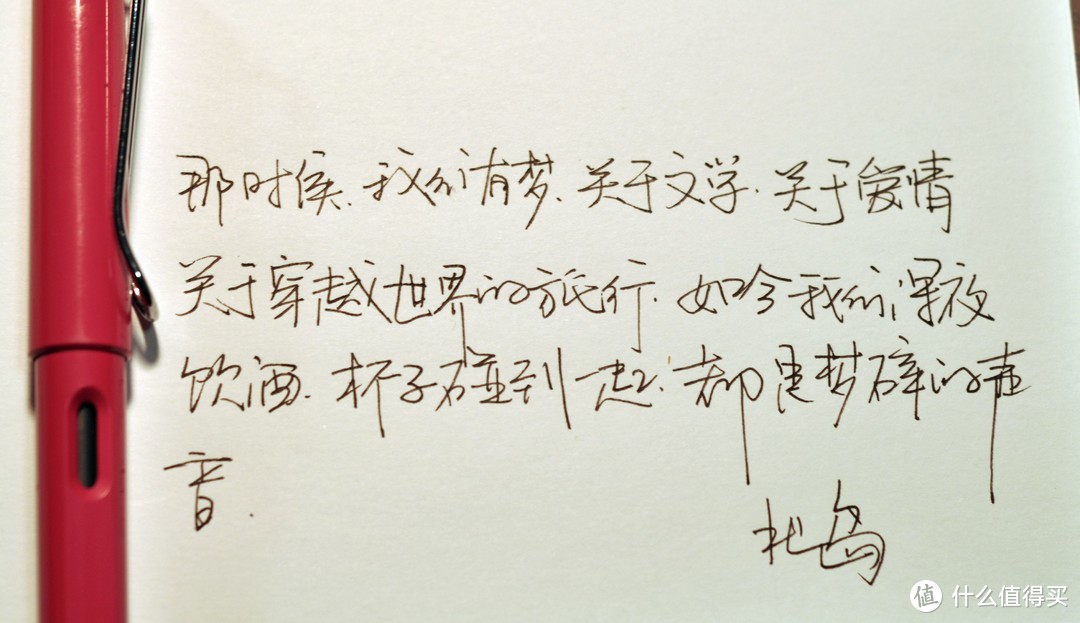 那时侯.我们有梓.关于文学.关于爱情
关于穿越世界的旅行.如今我们深夜
饮酒.杯子碰到一起.都是梦碎的声
音.
北岛
值 什么值得买